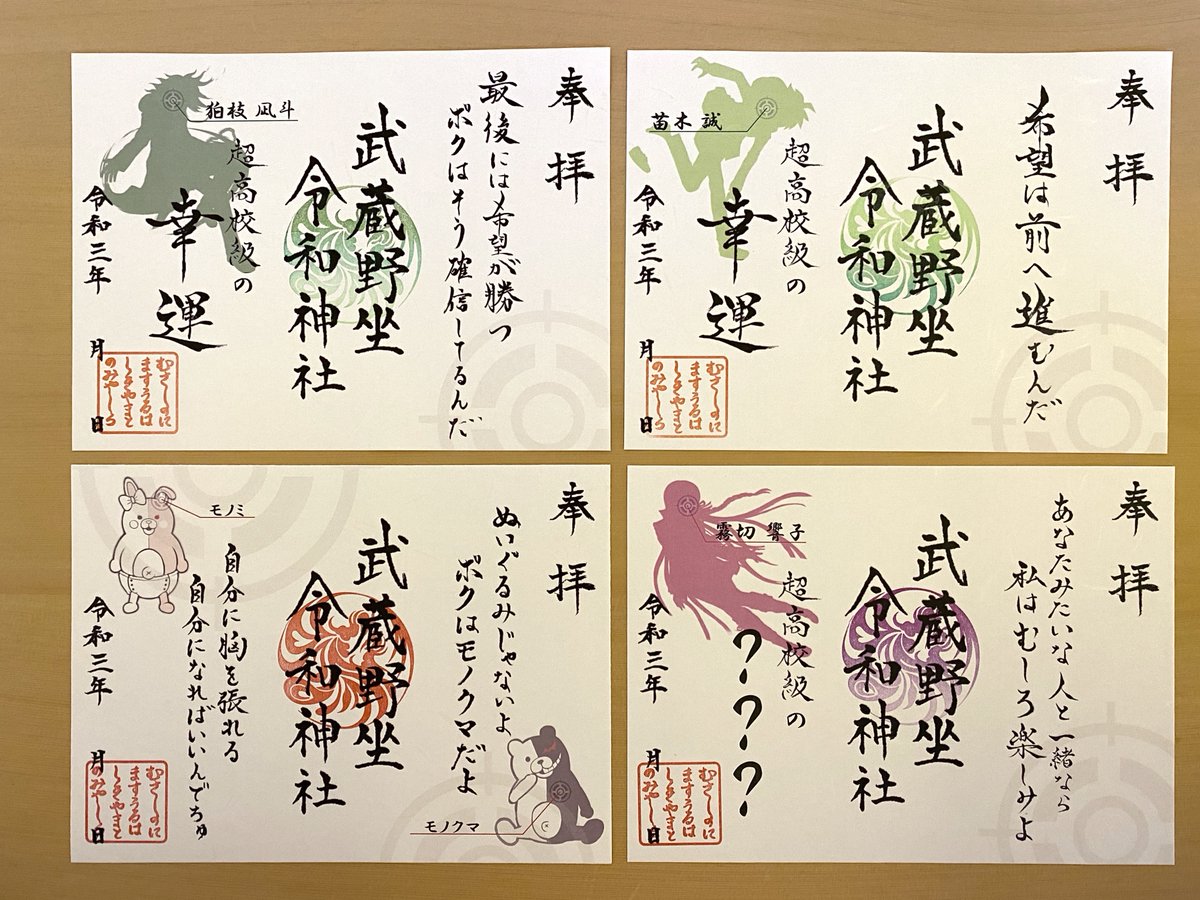 奉拝
最後には希望が勝つ
ボクはそう確信してるんだ
武蔵野坐
令和神社
狛枝 凪斗
超高校級の
幸運
令和三年 月 日
むさしのに
ますうるは
しきやまと
のみやしろ
奉拝
希望は前へ進むんだ
武蔵野坐
令和神社
苗木 誠
超高校級の
幸運
令和三年 月 日
むさしのに
ますうるは
しきやまと
のみやしろ
奉拝
ぬいぐるみじゃないよ
ボクはモノクマだよ
モノクマ
武蔵野坐
令和神社
モノミ
自分に胸を張れる
自分になればいいんでちゅ
令和三年 月 日
むさしのに
ますうるは
しきやまと
のみやし
奉拝
あなたみたいな人と一緒なら
私はむしろ楽しみよ
武蔵野坐
令和神社
霧切 響子
超高校級の
????
令和三年 月 日
むさしのに
ますうるは
しきやまと
のみやし